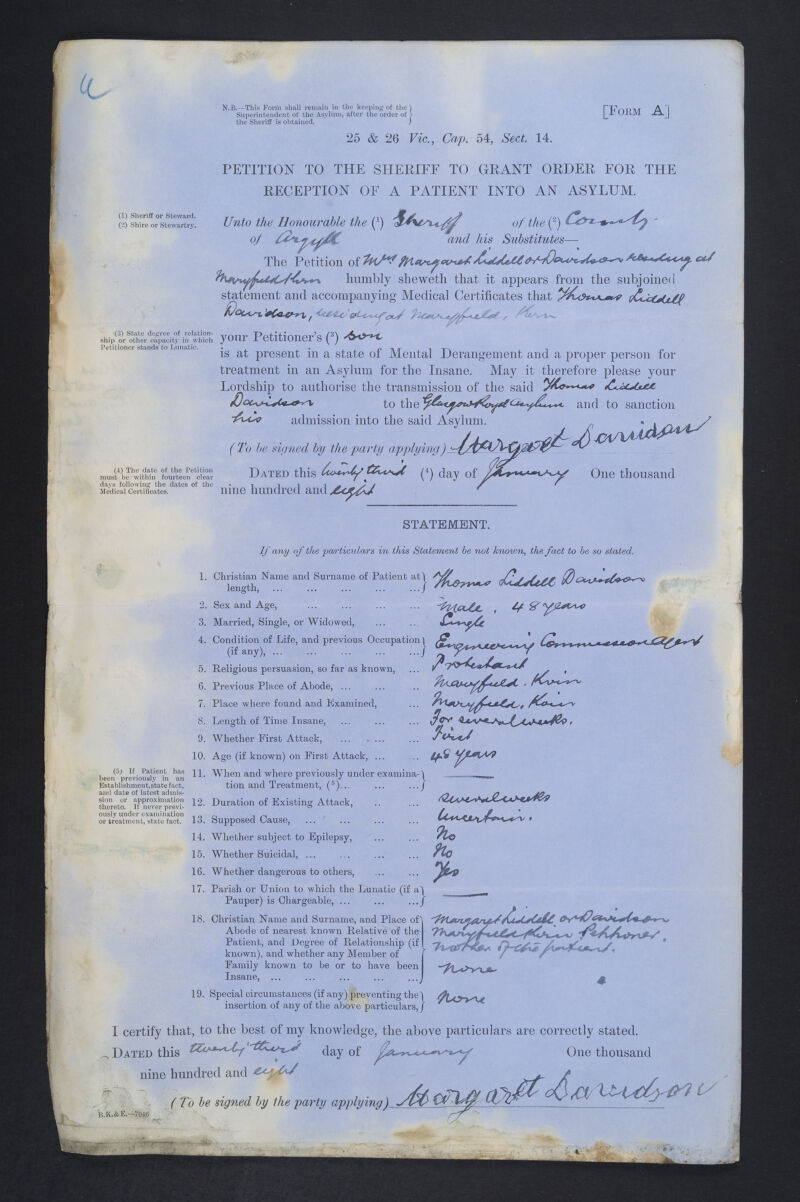 a
N.B.—This Form shall remain in the keeping of the
Superintendent of the Asylum, after the order of
the Sheriff is obtained.
[FORM A]
25 & 26 Vic., Cap. 54, Sect. 14.
PETITION TO THE SHERIFF TO GRANT ORDER FOR THE
RECEPTION OF A PATIENT INTO AN ASYLUM.
(1) Sheriff or Steward.
(2) Shire or Stewartry.
Unto the Honourable the (1) Sheriff of the (2) County
of Argyll and his Substitutes—
The Petition of Mrs Margaret Liddell or Davidson residing at
Maryfield Kirn humbly sheweth that it appears from the subjoined
statement and accompanying Medical Certificates that Thomas Liddell
Davidson, residing at Maryfield, Kirn
(3) State degree of relation-
ship or other capacity in which
Petitioner stands to Lunatic.
your Petitioner's (3) son
is at present in a state of Mental Derangement and a proper person for
treatment in an Asylum for the Insane. May it therefore please your
Lordship to authorise the transmission of the said Thomas Liddell
Davidson to the Glasgow Royal Asylum and to sanction
his admission into the said Asylum.
(To be signed by the party applying) Margaret Davidson
(4) The date of the Petition
must be within fourteen clear
days following the dates of the
Medical Certificates.
DATED this twenty third (4) day of January One thousand
nine hundred and eight
STATEMENT.
If any of the particulars in this Statement be not known, the fact to be so stated.
1. Christian Name and Surname of Patient at
length, ... Thomas Liddell Davidson
2. Sex and Age, ... Male, 48 years
3. Married, Single, or Widowed, ... Single
4. Condition of Life, and previous Occupation
(if any), ... Engineering Commission Agent
5. Religious persuasion, so far as known, ... Protestant
6. Previous Place of Abode, ... Maryfield. Kirn
7. Place where found and Examined, ... Maryfield, Kirn
8. Length of Time Insane, ... For several weeks.
9. Whether First Attack, ... First
10. Age (if known) on First Attack, ... 48 years
(5) If Patient has
been previously in an
Establishment, state fact,
and date of latest admis-
sion or approximation
thereto. If never previ-
ously under examination
or treatment, state fact.
11. When and where previously under examina-
tion and Treatment, (5)... —
12. Duration of Existing Attack, ... Several weeks
13. Supposed Cause, ... Uncertain.
14. Whether subject to Epilepsy, ... No
15. Whether Suicidal, ... No
16. Whether dangerous to others, ... Yes
17. Parish or Union to which the Lunatic (if a
Pauper) is Chargeable, ... —
18. Christian Name and Surname, and Place of
Abode of nearest known Relative of the
Patient, and Degree of Relationship (if
known), and whether any Member of
Family known to be or to have been
Insane, ...
Margaret Liddell or Davidson
Maryfield Kirn Petitioner,
mother of the patient.
None
19. Special circumstances (if any) preventing the
insertion of any of the above particulars, None
I certify that, to the best of my knowledge, the above particulars are correctly stated.
DATED this twenty third day of January One thousand
nine hundred and eight
(To be signed by the party applying) Margaret Davidson
B.R.&E.—7046